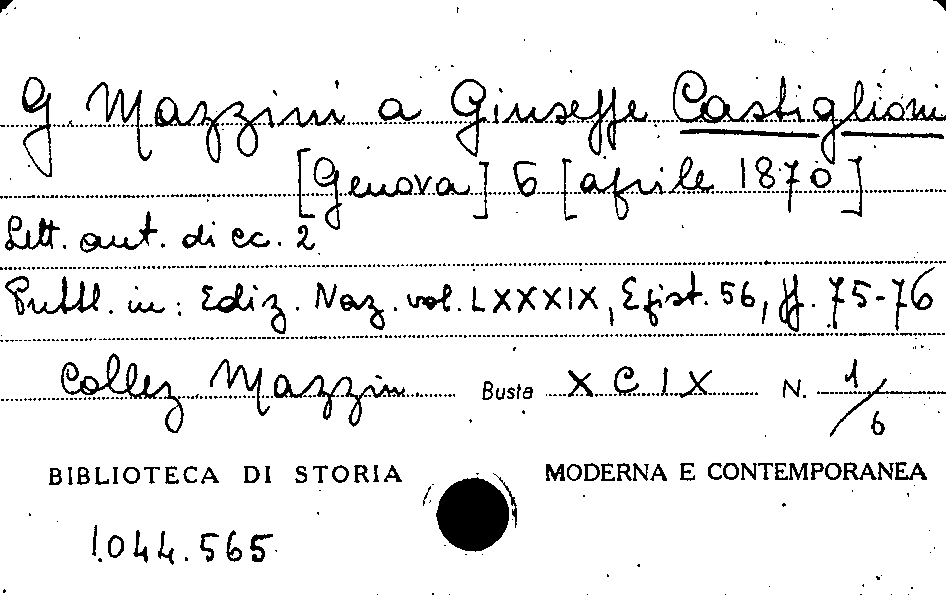 G. Mazzini a Giuseppe Castiglioni
[Genova] 6 [aprile 1870]
Lett. aut. di cc. 2
Pubbl. in: Ediz. Naz. vol. LXXXIX, Epist. 56, pp. 75-76
Collez. Mazzini Busta XCIX N. 1/6
BIBLIOTECA DI STORIA MODERNA E CONTEMPORANEA
1.044.565